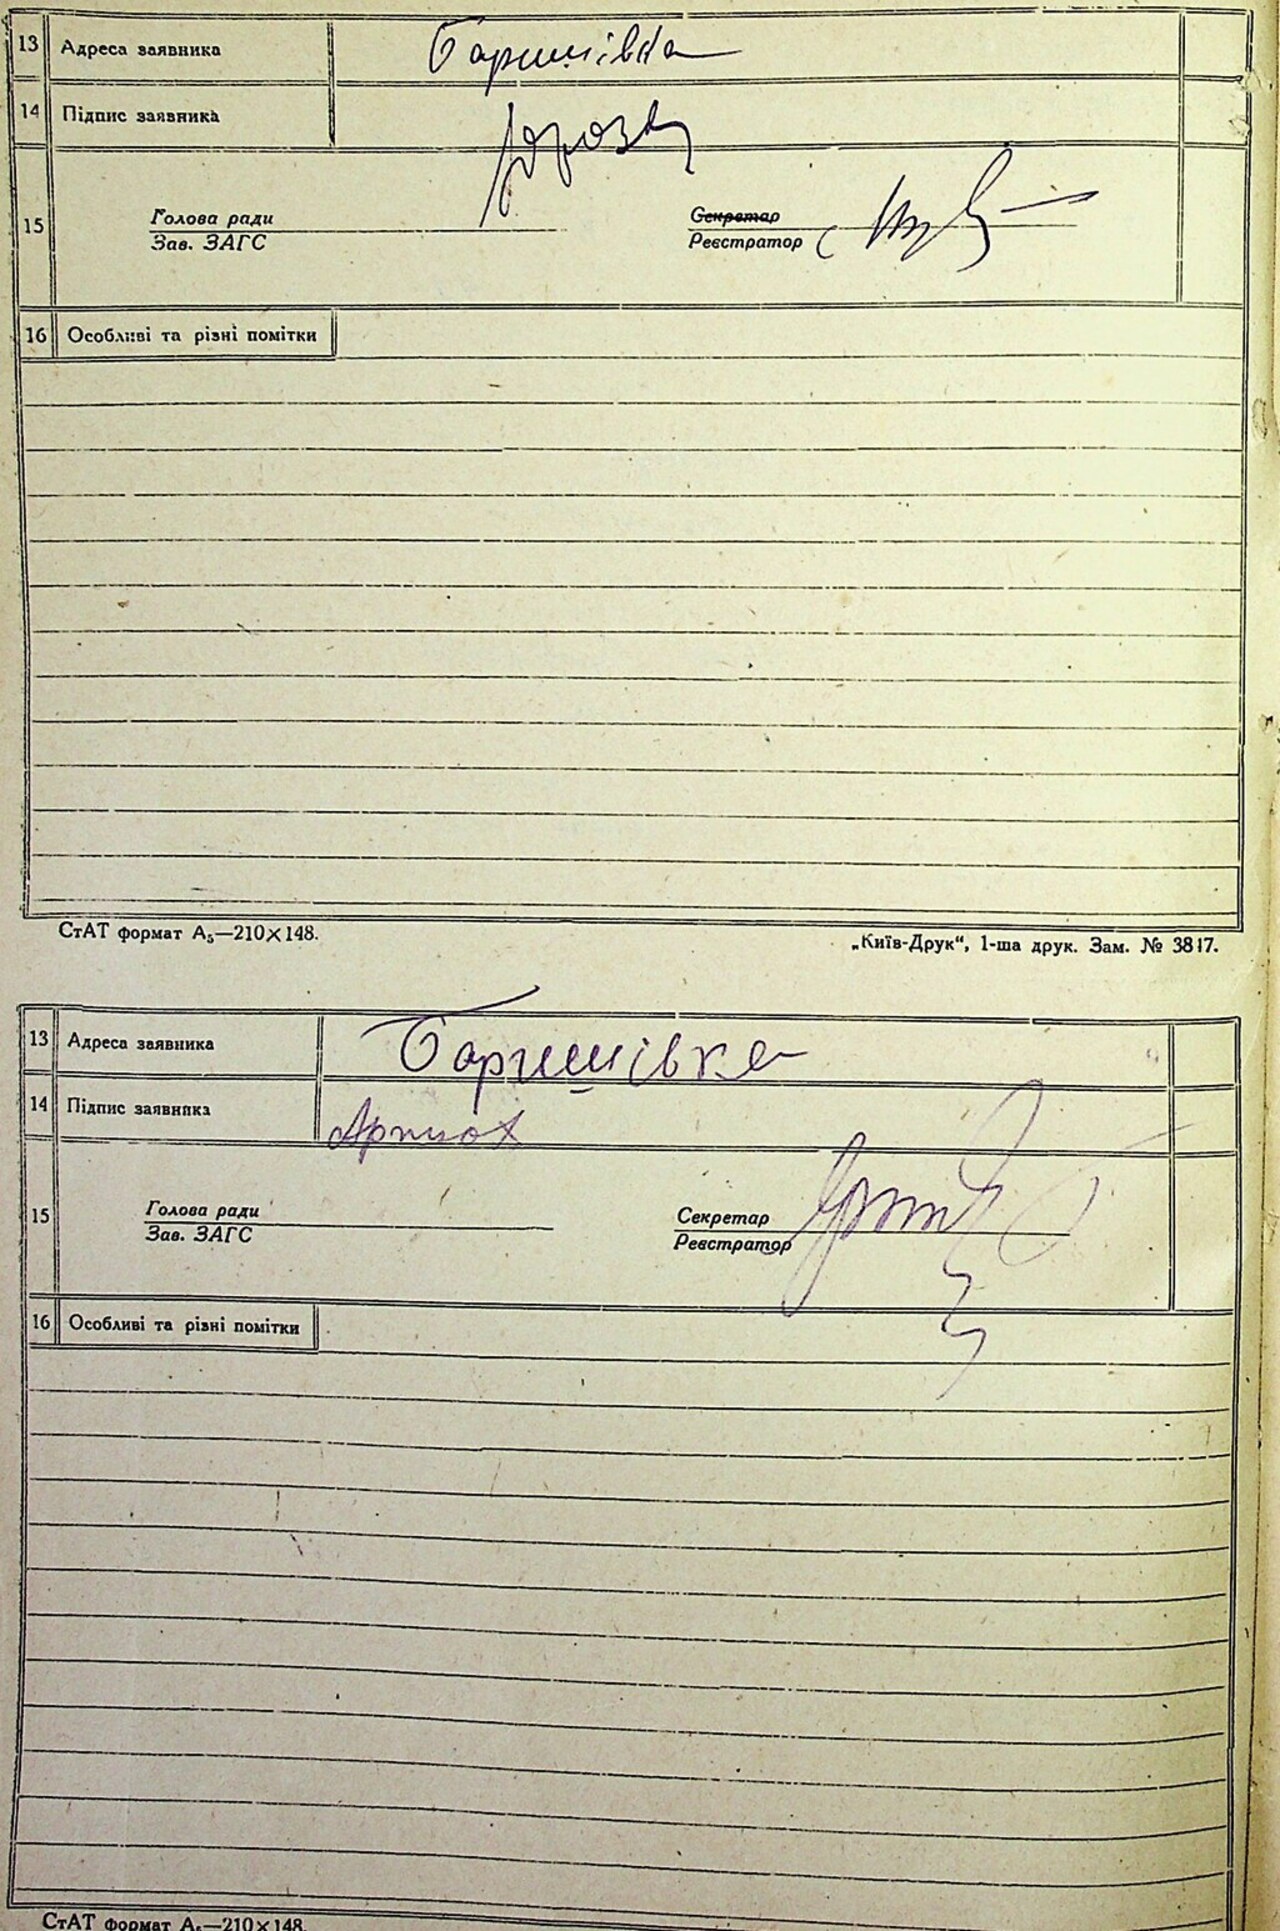 13 Адреса заявника Баришівка
14 Підпис заявника
15 Голова ради Секретар
Зав. ЗАГС Реєстратор
16 Особливі та різні помітки
СтАТ формат А₅—210×148. „Київ-Друк“, 1-ша друк. Зам. № 3817.
13 Адреса заявника Баришівка
14 Підпис заявника
15 Голова ради Секретар
Зав. ЗАГС Реєстратор
16 Особливі та різні помітки
СтАТ формат А₅—210×148.